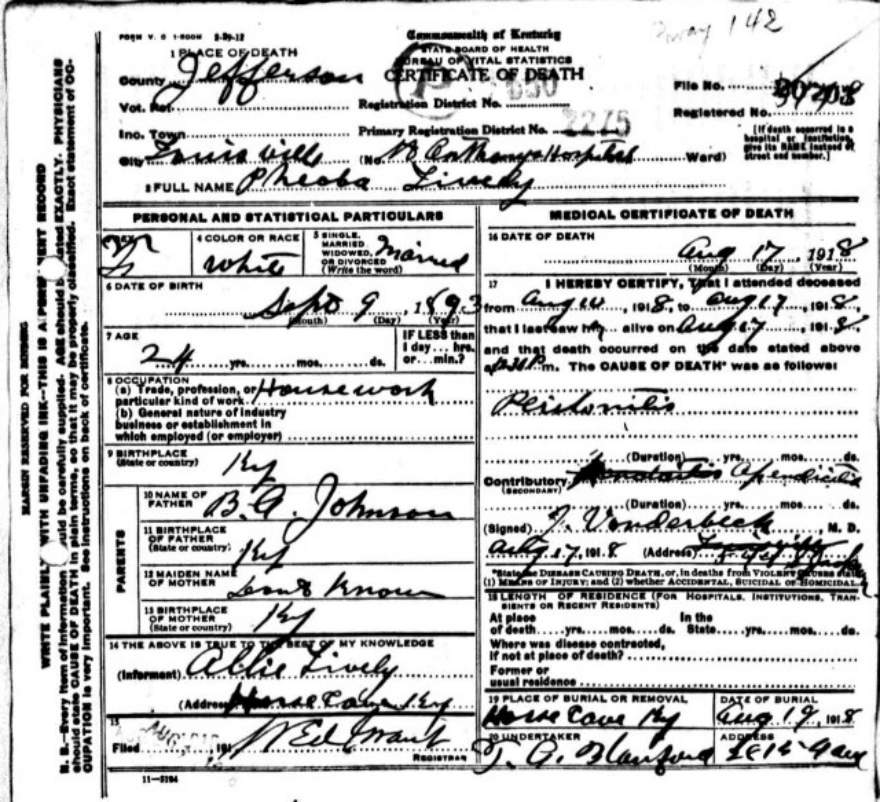 FORM V. S. 1-500M 2-29-12
Commonwealth of Kentucky
STATE BOARD OF HEALTH
BUREAU OF VITAL STATISTICS
CERTIFICATE OF DEATH
1 PLACE OF DEATH
County Jefferson
Vot. Pct.
Inc. Town
City Louisville
Registration District No.
Primary Registration District No. 2275
(No. St Anthonys Hospital Ward)
File No.
Registered No.
[If death occurred in a
hospital or institution,
give its NAME instead of
street and number.]
2 FULL NAME Pheoba Lively
PERSONAL AND STATISTICAL PARTICULARS
SEX F
4 COLOR OR RACE White
5 SINGLE, MARRIED, WIDOWED, OR DIVORCED (Write the word) Married
6 DATE OF BIRTH
Sept 9, 1893
(Month) (Day) (Year)
7 AGE
24 yrs. mos. ds.
IF LESS than
1 day... hrs.
or... min.?
8 OCCUPATION
(a) Trade, profession, or
particular kind of work Housework
(b) General nature of industry
business or establishment in
which employed (or employer)
9 BIRTHPLACE
(State or country) Ky
PARENTS
10 NAME OF
FATHER B. A. Johnson
11 BIRTHPLACE
OF FATHER
(State or country) Ky
12 MAIDEN NAME
OF MOTHER Dont Know
13 BIRTHPLACE
OF MOTHER
(State or country) Ky
14 THE ABOVE IS TRUE TO THE BEST OF MY KNOWLEDGE
(Informant) Allie Lively
(Address) Horse Cave Ky
15
Filed 191
REGISTRAR
11-3184
MEDICAL CERTIFICATE OF DEATH
16 DATE OF DEATH
Aug 17, 1918
(Month) (Day) (Year)
17 I HEREBY CERTIFY, That I attended deceased
from Aug 14, 1918, to Aug 17, 1918
that I last saw h alive on Aug 17, 1918,
and that death occurred on the date stated above
at m. The CAUSE OF DEATH* was as follows:
Peritonitis
(Duration) yrs. mos. ds.
Contributory Apendicitis
(SECONDARY)
(Duration) yrs. mos. ds.
(Signed) J. Vanderbeck, M. D.
Aug 17, 1918 (Address)
*State the DISEASE CAUSING DEATH, or, in deaths from VIOLENT CAUSES state
(1) MEANS OF INJURY; and (2) whether ACCIDENTAL, SUICIDAL or HOMICIDAL
18 LENGTH OF RESIDENCE (FOR HOSPITALS, INSTITUTIONS, TRAN-
SIENTS OR RECENT RESIDENTS)
At place In the
of death yrs. mos. ds. State yrs. mos. ds.
Where was disease contracted,
if not at place of death?
Former or
usual residence
19 PLACE OF BURIAL OR REMOVAL
Horse Cave Ky
DATE OF BURIAL
Aug 19, 1918
20 UNDERTAKER
ADDRESS
MARGIN RESERVED FOR BINDING
WRITE PLAINLY WITH UNFADING INK—THIS IS A PERMANENT RECORD
N. B.—Every item of information should be carefully supplied. AGE should be stated EXACTLY. PHYSICIANS
should state CAUSE OF DEATH in plain terms, so that it may be properly classified. Exact statement of OC-
CUPATION is very important. See instructions on back of certificate.